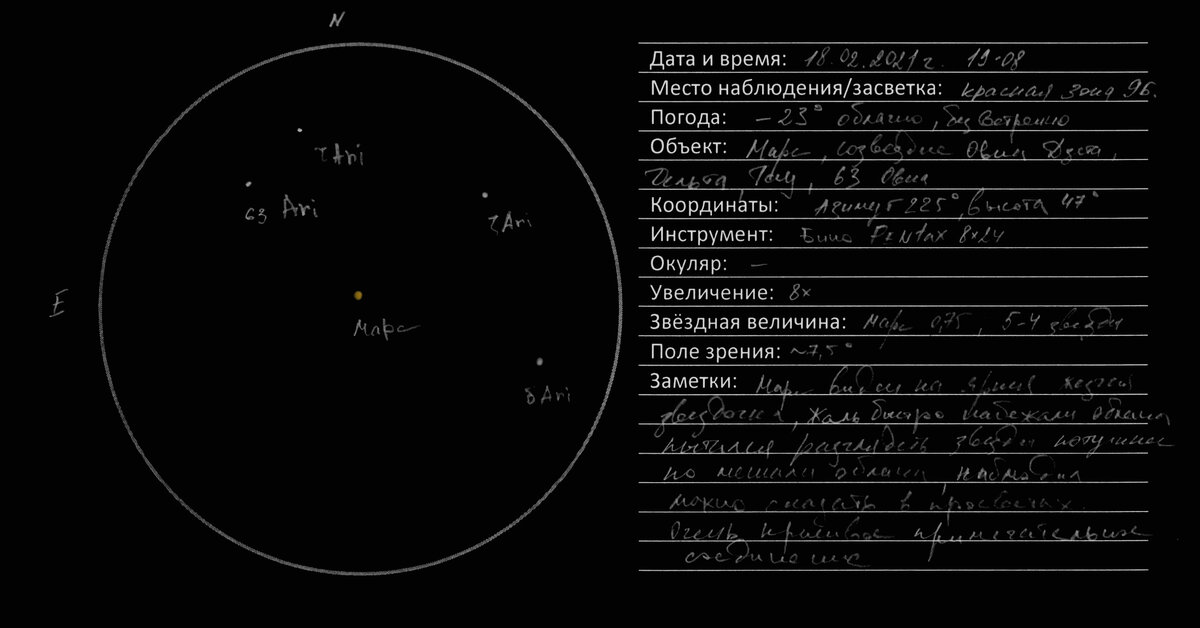 N
τ Ari
63 Ari
ζ Ari
E
Марс
δ Ari
Дата и время: 18.02.2021 г. 19-08
Место наблюдения/засветка: красная зона 9Б.
Погода: -23° облачно, безветренно
Объект: Марс, созвездие Овна Дзета,
Дельта, Тау, 63 Овна
Координаты: Азимут 225°, высота 47°
Инструмент: Бино Pentax 8x24
Окуляр: –
Увеличение: 8x
Звёздная величина: Марс 0,75, 5-4 звёзды
Поле зрения: ~7,5°
Заметки: Марс виден на
звездочка, Жаль быстро набежали облака
пытался разглядеть звёзды
но мешали облака, наблюдал
можно сказать в просветах.
Очень красивое примечательное
соединение